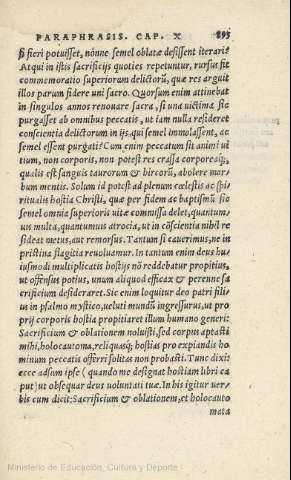 PARAPHRASIS. CAP. X 895
si fieri potuisset, nónne semel oblatæ desissent iterari?
Atqui in istis sacrificijs quoties repetuntur, rursus fit
commemoratio superiorum delictorũ, quæ res arguit
illos parum fidere uni sacro. Quorsum enim attinebat
in singulos annos renouare sacra, si una uictima sic
purgasset ab omnibus peccatis, ut iam nulla resideret
conscientia delictorum in ijs, qui semel immolassent, ac
semel essent purgati? Cum enim peccatum sit animi ui
tium, non corporis, non potest res crassa corporeaq;,
qualis est sanguis taurorum & hircorũ, abolere mor-
bum mentis. Solum id potest ad plenum cœlestis ac spi
ritualis hostia Christi, quæ per fidem ac baptismũ sic
semel omnia superioris uitæ commissa delet, quantum
uis multa, quantumuis atrocia, ut in cõscientia nihil re
sideat metus, aut remorsus. Tantum si cauerimus, ne in
pristina flagitia reuoluamur. In tantum enim deus hu
iusmodi multiplicatis hostijs nõ reddebatur propitius,
ut offensus potius, unum aliquod efficax & perenne sa
crificium desideraret. Sic enim loquitur deo patri fili
us in psalmo mystico, ueluti mundũ ingressurus, ut pro
prij corporis hostia propitiaret illum humano generi:
Sacrificium & oblationem noluisti, sed corpus aptasti
mihi, holocautoma, reliquasq; hostias pro expiandis ho
minum peccatis offerri solitas non probasti. Tunc dixi:
ecce adsum ipse (quando me designat hostiam libri ca
put) ut obsequar deus uoluntati tuæ. In his igitur uer-
bis cum dicit: Sacrificium & oblationem, et holocauto
mata
Ministerio de Educación, Cultura y Deporte